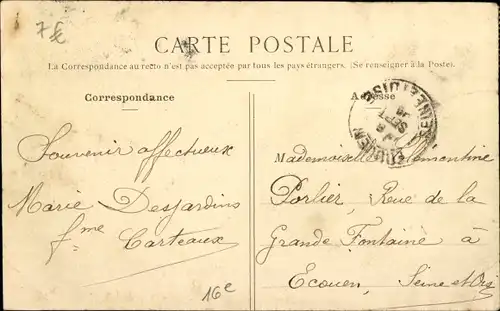 7€
CARTE POSTALE
La Correspondance au recto n'est pas acceptée par tous les pays étrangers. (Se renseigner à la Poste).
Correspondance
Adresse
SEINE ET OISE
SEPT
Souvenir affectueux
Marie Desjardins
fme Carteaux
16e
Mademoiselle Clémentine
Porlier, Rue de la
Grande Fontaine à
Ecouen, Seine et Oise